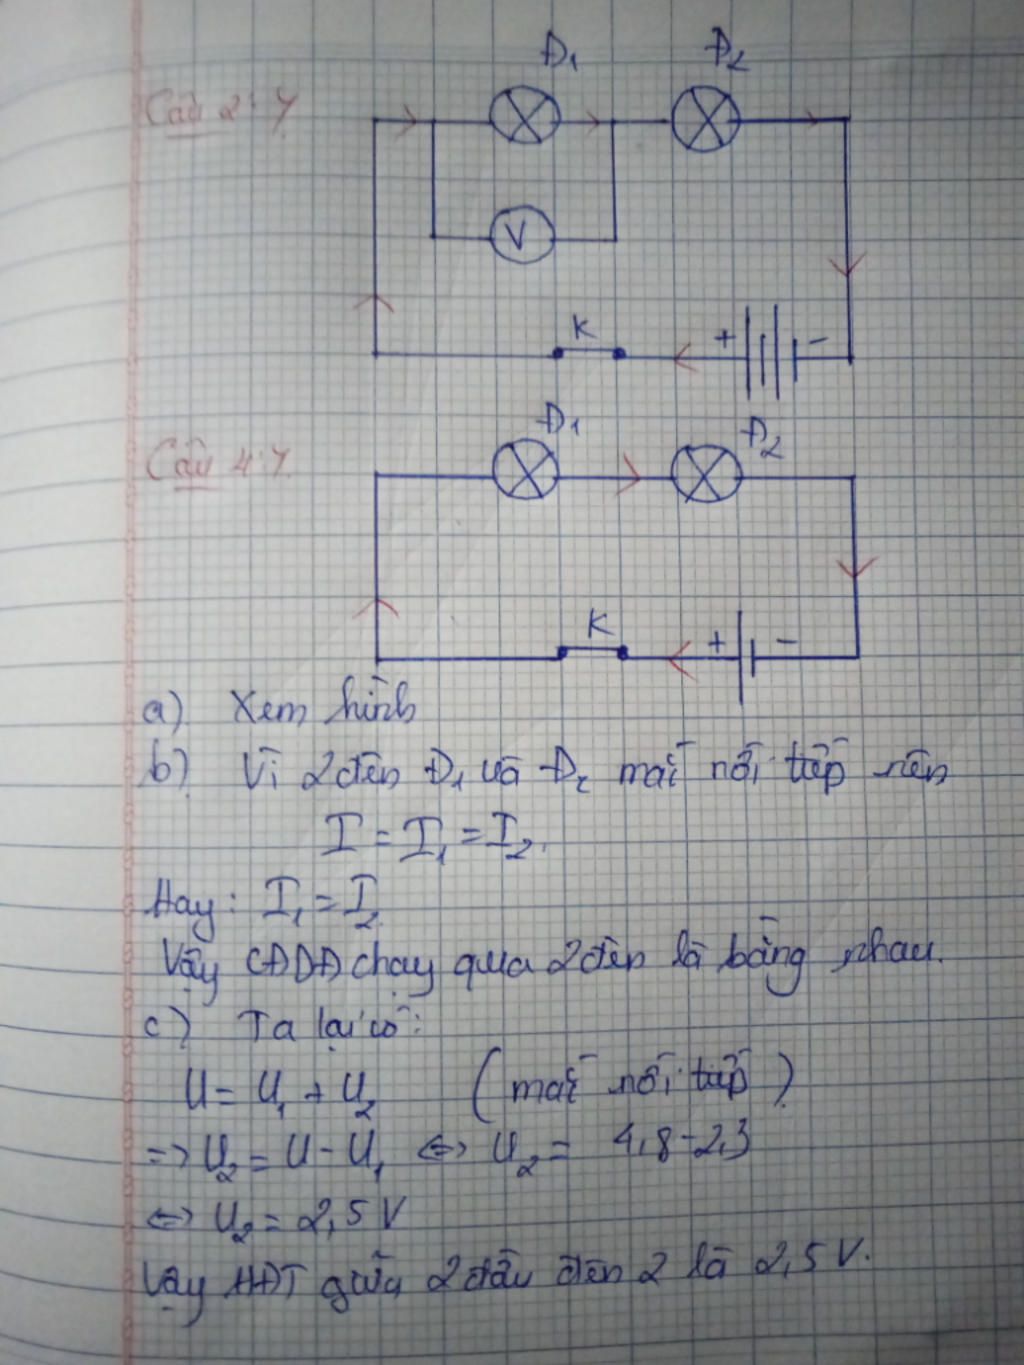 Đ₁ Đ₂
Câu 2:
V
K
+ -
Đ₁ Đ₂
Câu 4:
K
+ -
a) Xem hình
b) Vì 2 đèn Đ₁ và Đ₂ mắc nối tiếp nên
I = I₁ = I₂.
Hay: I₁ = I₂
Vậy CĐDĐ chạy qua 2 đèn là bằng nhau.
c) Ta lại có:
U = U₁ + U₂ (mắc nối tiếp)
=> U₂ = U - U₁ <=> U₂ = 4,8 - 2,3
<=> U₂ = 2,5 V
Vậy HĐT giữa 2 đầu đèn 2 là 2,5 V.